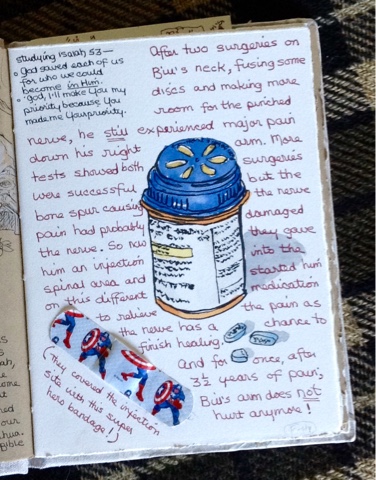 studying Isaiah 53—
• God saved each of us
for who we could
become in Him.
• God, I'll make You my
priority because You
made me Your priority.
After two surgeries on
Biw's neck, fusing some
discs and making more
room for the pinched
nerve, he still experienced major pain
down his right arm. More
tests showed both surgeries
were successful but the
bone spur causing the nerve
pain had probably damaged
the nerve. So now they gave
him an injection into the
spinal area, and started him
on this different medication
to relieve the pain as
the nerve has a chance to
finish healing.
And for once, after
3½ years of pain,
Biw's arm does not
hurt anymore!
(They covered the injection
site with this super
hero bandage!)